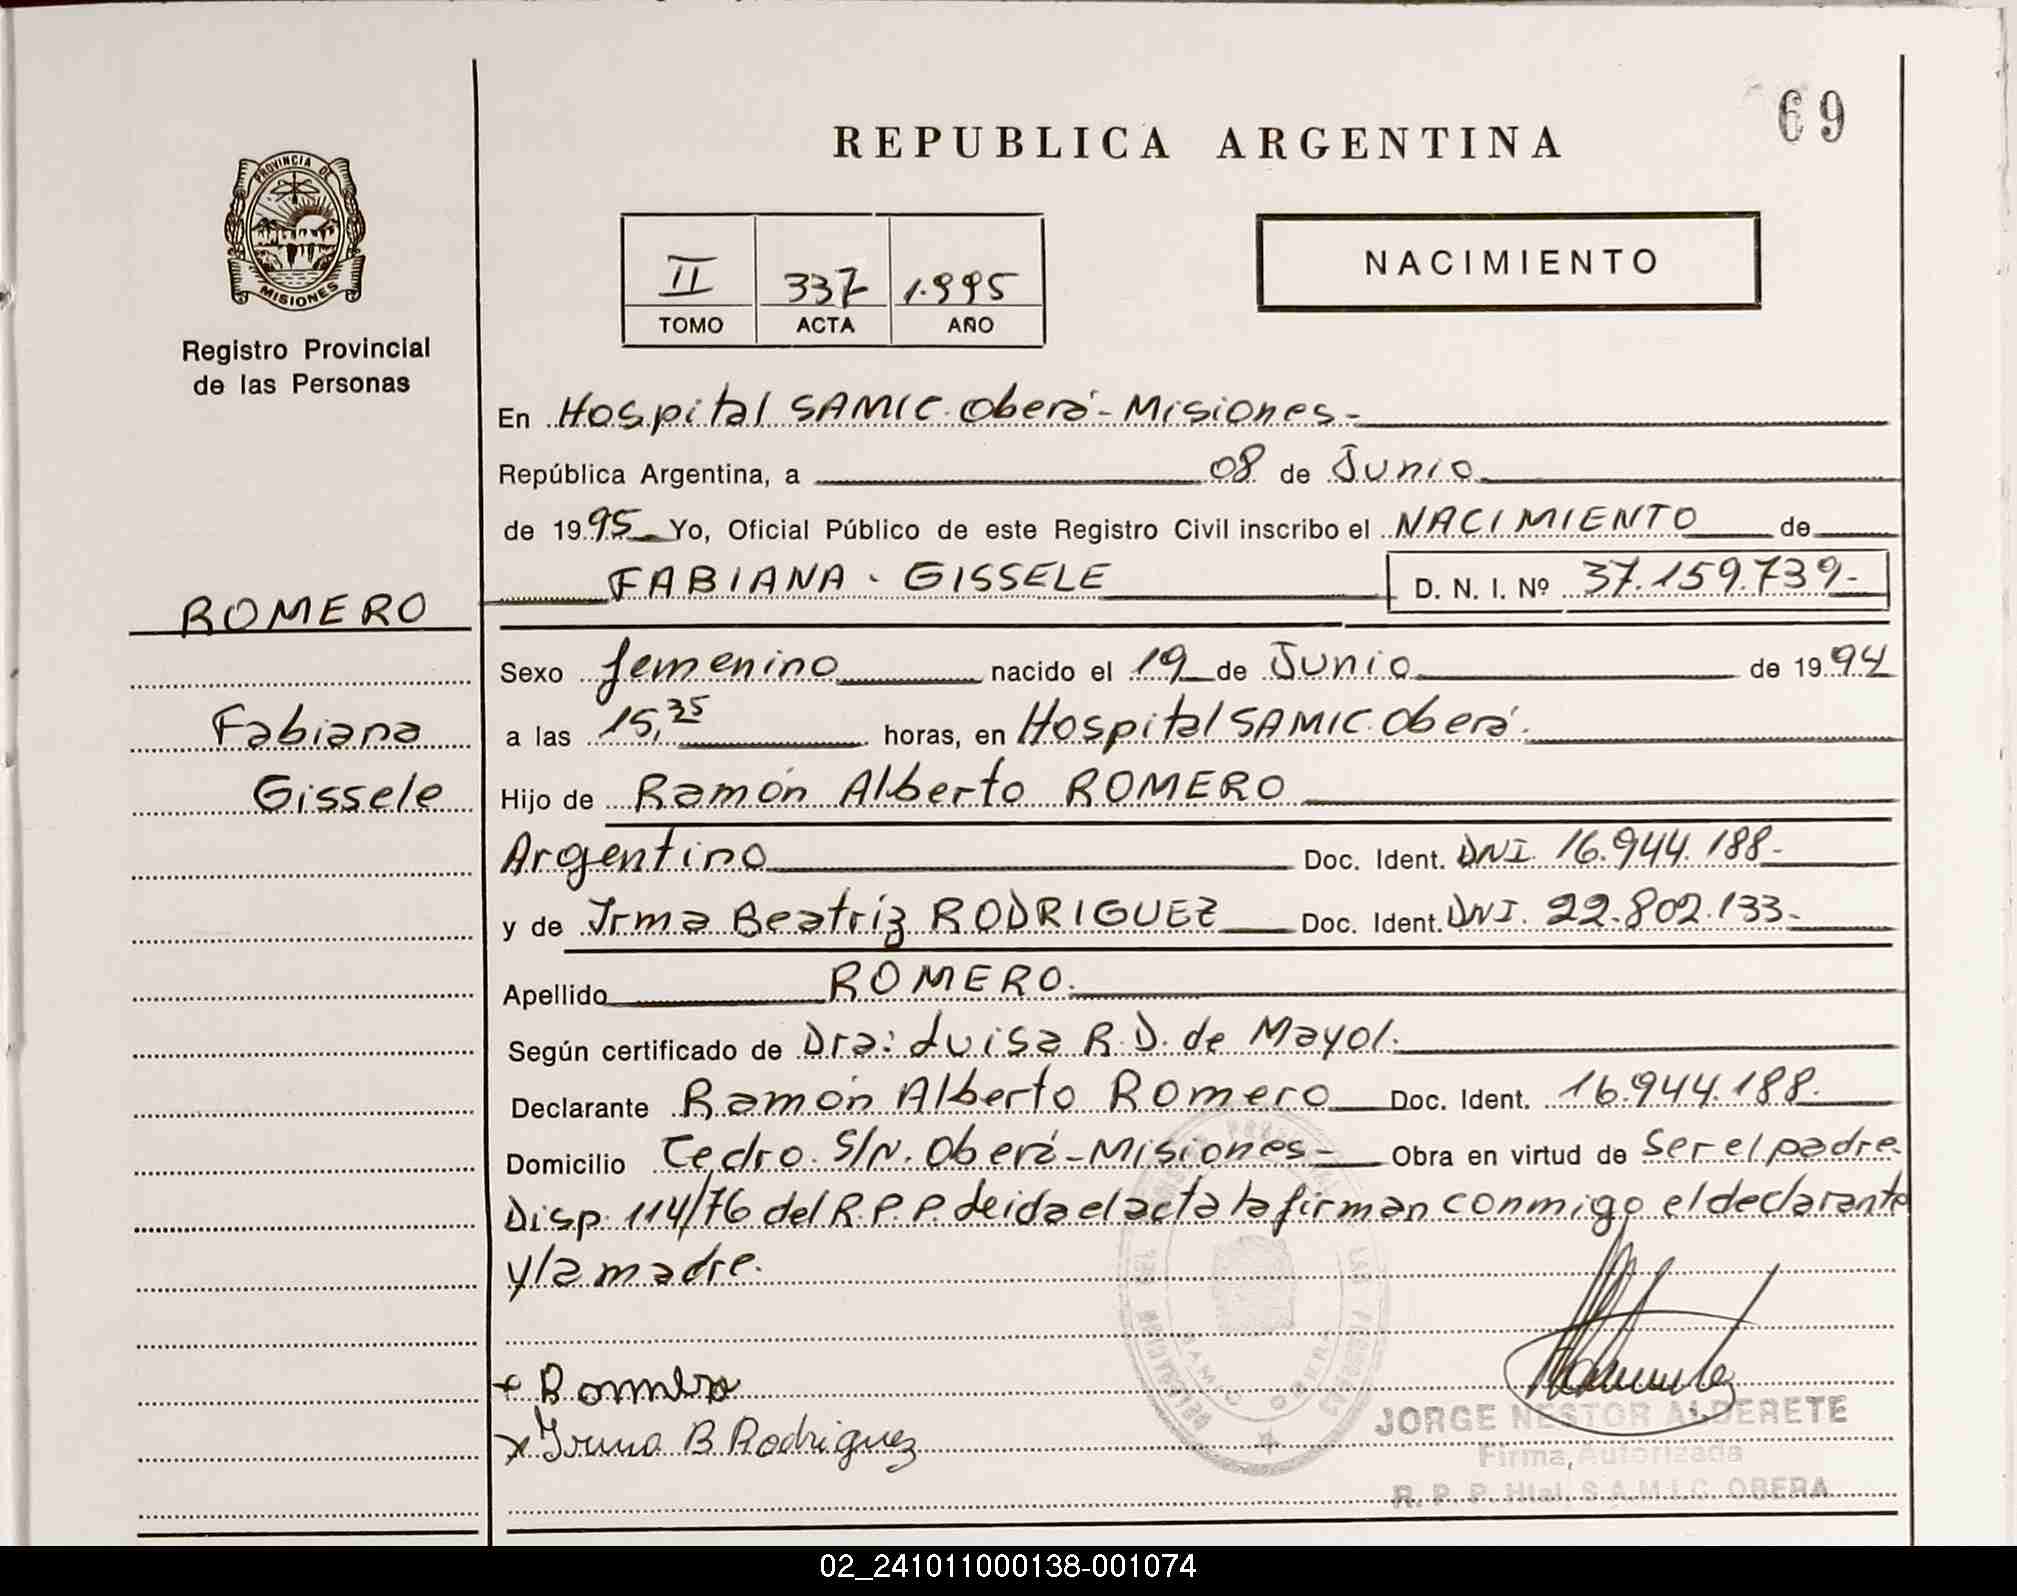 69
REPUBLICA ARGENTINA
PROVINCIA DE
MISIONES
Registro Provincial
de las Personas
II 337 1.995
TOMO ACTA AÑO
NACIMIENTO
En Hospital SAMIC. Oberá - Misiones -
República Argentina, a 08 de Junio
de 1995 Yo, Oficial Público de este Registro Civil inscribo el NACIMIENTO de
FABIANA. GISSELE D. N. I. Nº 37.159.739-
ROMERO
Sexo femenino nacido el 19 de Junio de 1994
Fabiana
a las 15,35 horas, en Hospital SAMIC. Oberá.
Gissele
Hijo de Ramón Alberto ROMERO
Argentino Doc. Ident. DNI. 16.944.188-
y de Irma Beatríz RODRIGUEZ Doc. Ident. DNI. 22.802.133-
Apellido ROMERO.
Según certificado de Dra: Luisa R. D. de Mayol.
Declarante Ramón Alberto Romero Doc. Ident. 16.944.188.
Domicilio Cedro. S/N. Oberá - Misiones - Obra en virtud de Ser el padre.
Disp. 114/76 del R.P.P. Leida el acta la firman conmigo el declarante
y la madre.
x Irma B Rodriguez
JORGE NESTOR ALDERETE
Firma Autorizada
R. P. P. Htal. S.A.M.I.C. OBERA
02_241011000138-001074